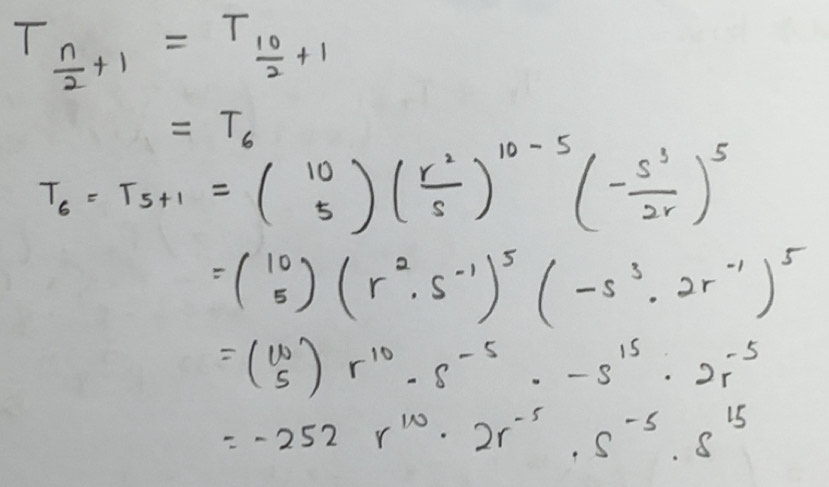 T_{n/2 + 1} = T_{10/2 + 1}
= T_6
T_6 = T_{5+1} = (10 5) (r^2/s)^{10-5} (-s^3/2r)^5
= (10 5) (r^2 . s^{-1})^5 (-s^3 . 2r^{-1})^5
= (10 5) r^{10} . s^{-5} . -s^{15} . 2r^{-5}
= -252 r^{10} . 2r^{-5} . s^{-5} . s^{15}